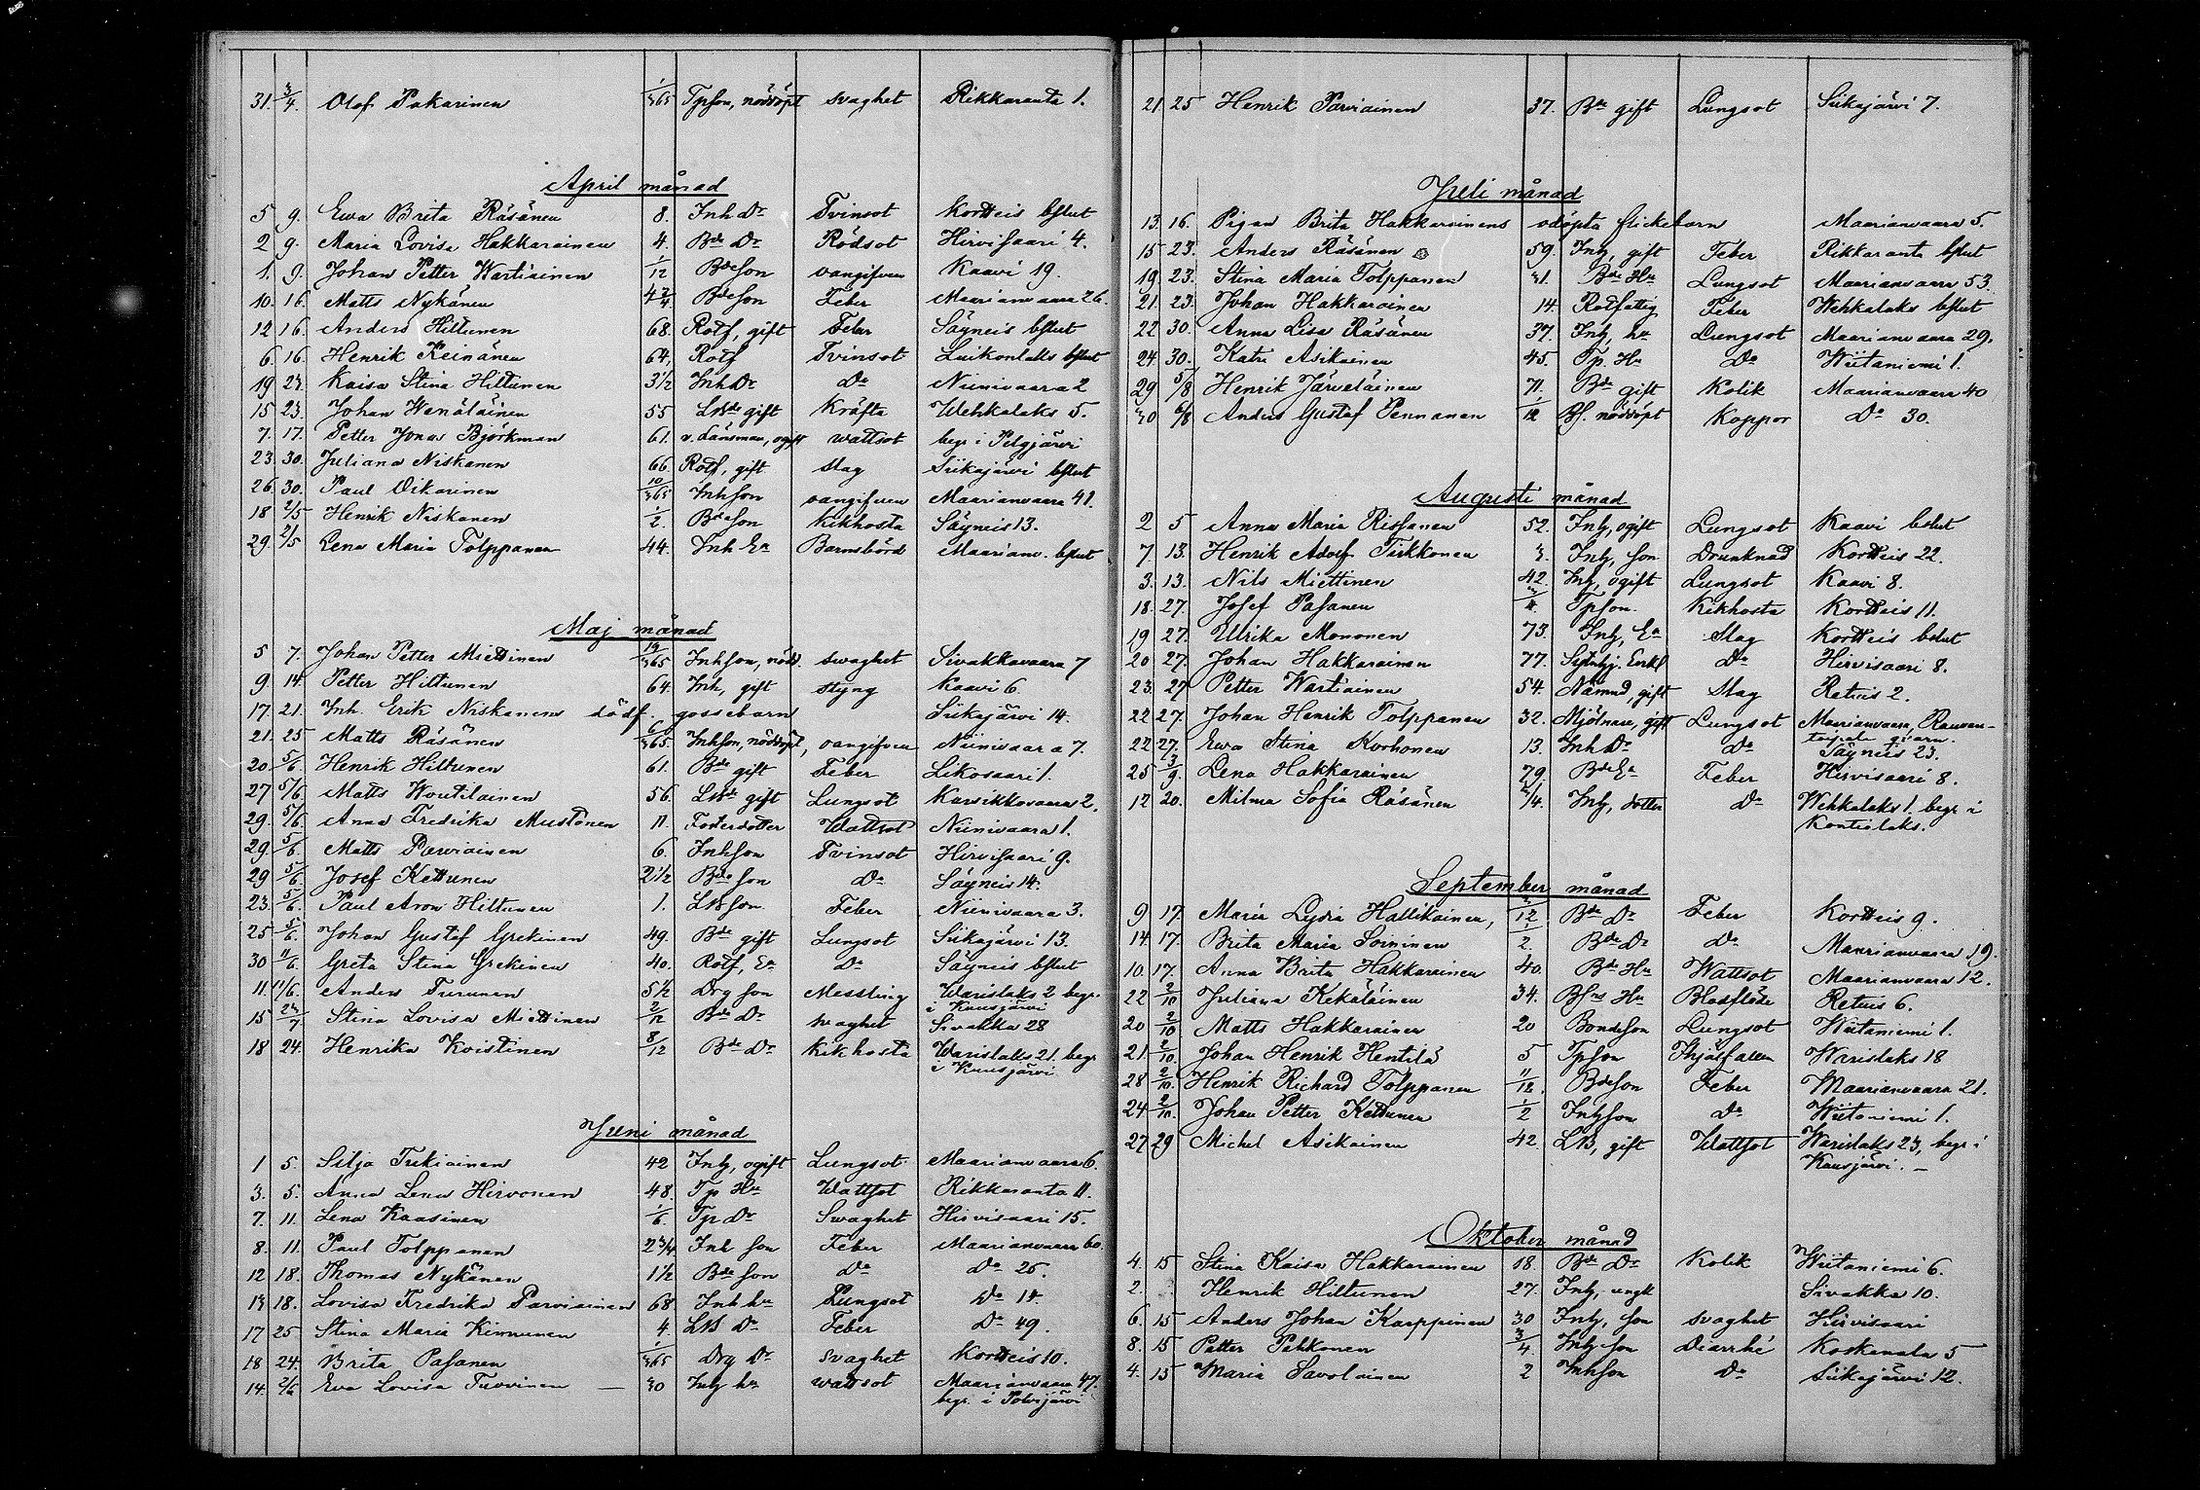 31. 3/4. Olof Pakarinen 1/365 Tpson, nöddöpt svaghet Rikkaranta 1.
April månad
5 9. Ewa Brita Räsänen 8. Inh Dr Tvinsot Kortteis bslut
2 9. Maria Lovisa Hakkarainen 4. Bde Dr Rödsot Hirvisaari 4.
1. 9. Johan Petter Wartiainen 1/12 Bdeson oangifven Kaavi 19.
10. 16. Matts Nykänen 4 3/4 Bdeson Feber Maarianvaara 26.
12 16. Anders Hiltunen 68. Rotf, gift Feber Säyneis bslut
6. 16. Henrik Reinänen 64. Rotf Tvinsot Luikonlaks bslut
19 23. Kaisa Stina Hiltunen 3 1/2 Inh Dr Do Niinivaara 2
15 23. Johan Wänäläinen 55 LBde gift Kräfta Wehkalaks 5.
7. 17. Petter Jonas Björkman 61. v. länsman, ogift wattsot begr i Polvijärvi
23. 30. Juliana Niskanen 66. Rotf, gift slag Siikajärvi bslut
26. 30. Paul Oikarinen 10/365 Inhson oangifven Maarianvaara 41.
18 2/5 Henrik Niskanen 1/2. Bdeson Kikhosta Säyneis 13.
29. 2/5 Lena Maria Tolppanen 44. Inh Ea Barnsbörd Maarianv. bslut
Maj månad
5 7. Johan Petter Miettinen 19/365 Inhson, nödd. swaghet Sivakkavaara 7
9. 14. Petter Hiltunen 64. Inh, gift styng Kaavi 6.
17. 21. Inh Erik Niskanens dödf. gossebarn Siikajärvi 14.
21. 25 Matts Räsänen 6/365. Inhson, nöddöpt, oangifven Niinivaara 7.
20. 5/6. Henrik Hiltunen 61. Bde gift Feber Likosaari 1.
27 5/6. Matts Woutilainen 56. LBde gift Lungsot Karsikkovaara 2.
29. 5/6. Anna Fredrika Mustonen 11. Fosterdotter Wattsot Niinivaara 1.
29. 5/6. Matts Parviainen 6. Inhson Tvinsot Hirvisaari 9.
29 5/6. Josef Kettunen 2 1/2 Bde son Do Säyneis 14.
23. 5/6. Paul Aron Hiltunen 1. LBson Feber Niinivaara 3.
25 5/6. Johan Gustaf Grekinen 49. Bde gift Lungsot Siikajärvi 13.
30 11/6. Greta Stina Grekinen 40. Rotf, Ea Do Säyneis bslut
11. 11/6. Anders Turunen 5 1/2 Drg son Messling Warislaks 2 begr.
i Kuusjärvi
15 24/7 Stina Lovisa Miettinen 2/12 Bde Dr swaghet Sivakka 28
18 24. Henrika Koistinen 8/12 Bde Dr Kikhosta Warislaks 21. begr
i Kuusjärvi
Juni månad
1 5. Silja Tukiainen 42 Inh, ogift Lungsot Maarianvaara 6.
3. 5. Anna Lena Hirvonen 48. Tp Hu Wattsot Rikkaranta 11.
7. 11. Lena Kaasinen 1/6. Tp Dr Swaghet Hirvisaari 15.
8. 11. Paul Tolppanen 2 3/4 Inh son Feber Maarianvaara 60.
12 18. Thomas Nykänen 1 1/2 Bde son Do Do 26.
13 18. Lovisa Fredrika Parviainen 68 Inh hu Lungsot Do 14.
17 25 Stina Maria Kinnunen 4. LB Dr Feber Do 49.
18 24. Brita Pasanen 1/365 Drg Dr svaghet Kortteis 10.
14. 2/6 Eva Lovisa Turvinen — 30 Inh hu wattsot Maarianvaara 47.
begr. i Polvijärvi
21. 25 Henrik Parviainen 37. Bde gift Lungsot Siikajärvi 7.
Juli månad
13. 16. Pigan Brita Hakkarainens odöpta flickebarn Maarianvaara 5.
15 23. Anders Räsänen 59. Inh, gift Feber Rikkaranta bslut
19 23. Stina Maria Tolppanen 31. Bde Hu Lungsot Maarianvaara 53.
21. 23. Johan Hakkarainen 14. Rotfattig Feber Wehkalaks bslut
22 30. Anna Lisa Räsänen 37. Inh, hu Lungsot Maarianvaara 29.
24. 30. Katri Asikainen 45. Tp. Hu Do Wiitaniemi 1.
29 5/8 Henrik Järveläinen 71. Bde gift Kolik Maarianvaara 40
30 6/8 Anders Gustaf Pennanen 1/12 Bs. nöddöpt Koppor Do 30.
Augusti månad
2 5 Anna Maria Rissanen 52. Inh, ogift Lungsot Kaavi bslut
7. 13. Henrik Adolf Tirkkonen 3. Inh, son Drunknad Kortteis 22.
3. 13. Nils Miettinen 42. Inh, ogift Lungsot Kaavi 8.
18. 27. Josef Pasanen Tpson. Kikhosta Kortteis 11.
19 27. Ulrika Mononen 73. Inh, Ea Slag Kortteis bslut
20 27. Johan Hakkarainen 77. Sytnhj. Enkl Do Hirvisaari 8.
23. 27 Petter Wartiainen 54. Nämnd, gift Slag Retuis 2.
22 27. Johan Henrik Tolppanen 32. Mjölnare, gift Lungsot Maarianvaara, Rauvan-
taipale qvarn.
22 27. Ewa Stina Korhonen 13. Inh Dr Do Säyneis 23.
25 3/9. Lena Hakkarainen 79. Bde Ea Feber Hirvisaari 8.
12 20. Milma Sofia Räsänen 2/4. Inh, dotter Do Wehkalaks 1. begr i
Kontiolaks.
September månad
9 17. Maria Lydia Hallikainen, /12 Bde Dr Feber Kortteis 9.
14. 17. Brita Maria Soininen 1/2. Bde Dr Do Maarianvaara 19.
10. 17. Anna Brita Hakkarainen 40. Bde Hu Wattsot Maarianvaara 12.
22 2/10 Juliana Kekäläinen 34. Bsns Hu Blodflöde Retuis 6.
20 2/10 Matts Hakkarainen 20 Bondeson Lungsot Wiitaniemi 1.
21. 2/10. Johan Henrik Hentilä 5 Tpson Ihjälfallen Warislaks 18
28 2/10. Henrik Richard Tolppanen 11/12. Bdeson Feber Maarianvaara 21.
24 2/10. Johan Petter Kettunen 1/2 Inhson Do Wiitaniemi 1.
27 29 Michel Asikainen 42. LB, gift Wattsot Warislaks 23, begr i
Kuusjärvi. —
Oktober månad
4. 15 Stina Kaisa Hakkarainen 18. Bde Dr Kolik Wiitaniemi 6.
2. Henrik Hiltunen 27. Inh, ungk Sivakka 10.
6. 15 Anders Johan Karppinen 30 Inh, son svaghet Hirvisaari
8. 15 Petter Pakkonen 3/4. Inh son Diarrhé Koskamala 5
4. 15 Maria Savolainen 2 Inhson Do Siikajärvi 12.